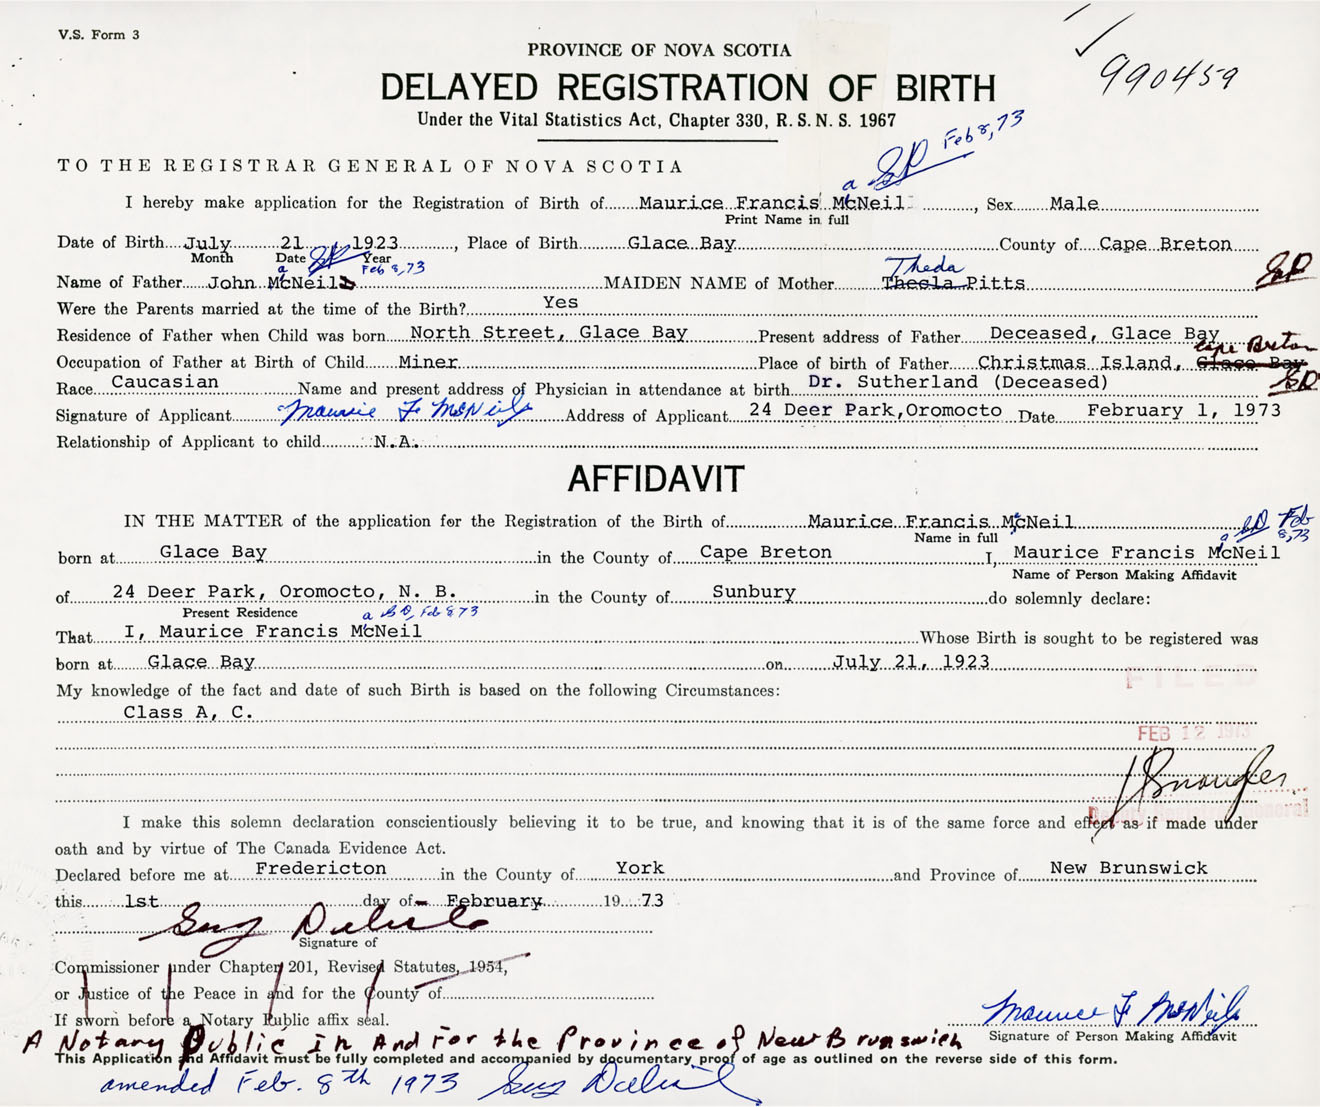 V.S. Form 3
990459
PROVINCE OF NOVA SCOTIA
DELAYED REGISTRATION OF BIRTH
Under the Vital Statistics Act, Chapter 330, R. S. N. S. 1967
Feb 8, 73
TO THE REGISTRAR GENERAL OF NOVA SCOTIA
a
I hereby make application for the Registration of Birth of Maurice Francis McNeil, Sex Male
Print Name in full
Date of Birth July 21, 1923, Place of Birth Glace Bay County of Cape Breton
Month Date Year
a Feb 8, 73 Theda
Name of Father John McNeil MAIDEN NAME of Mother Theola Pitts
Were the Parents married at the time of the Birth? Yes
Residence of Father when Child was born North Street, Glace Bay Present address of Father Deceased, Glace Bay
Cape Breton
Occupation of Father at Birth of Child Miner Place of birth of Father Christmas Island, Glace Bay
Race Caucasian Name and present address of Physician in attendance at birth Dr. Sutherland (Deceased)
Signature of Applicant Maurice F McNeil Address of Applicant 24 Deer Park, Oromocto Date February 1, 1973
Relationship of Applicant to child N.A.
AFFIDAVIT
IN THE MATTER of the application for the Registration of the Birth of Maurice Francis McNeil
Name in full
Feb 8, 73
a
born at Glace Bay in the County of Cape Breton I, Maurice Francis McNeil
Name of Person Making Affidavit
of 24 Deer Park, Oromocto, N. B. in the County of Sunbury do solemnly declare:
Present Residence
a Feb 8, 73
That I, Maurice Francis McNeil Whose Birth is sought to be registered was
born at Glace Bay on July 21, 1923
FILED
My knowledge of the fact and date of such Birth is based on the following Circumstances:
Class A, C.
FEB 12 1973
Deputy Registrar General
I make this solemn declaration conscientiously believing it to be true, and knowing that it is of the same force and effect as if made under
oath and by virtue of The Canada Evidence Act.
Declared before me at Fredericton in the County of York and Province of New Brunswick
this 1st day of February 19 73
Signature of
Commissioner under Chapter 201, Revised Statutes, 1954,
or Justice of the Peace in and for the County of
If sworn before a Notary Public affix seal.
Maurice F McNeil
Signature of Person Making Affidavit
A Notary Public In And For the Province of New Brunswick
This Application and Affidavit must be fully completed and accompanied by documentary proof of age as outlined on the reverse side of this form.
amended Feb. 8th 1973